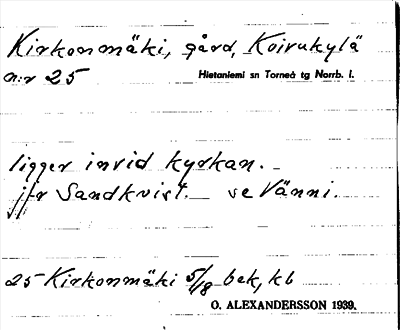 Kirkonmäki, gård, Koirukylä
n:r 25 Hietaniemi sn Torneå tg Norrb. l.
ligger invid kyrkan.
jfr Sandkvist. se Vänni.
25 Kirkonmäki 5/18 bek, kb
O. ALEXANDERSSON 1939.